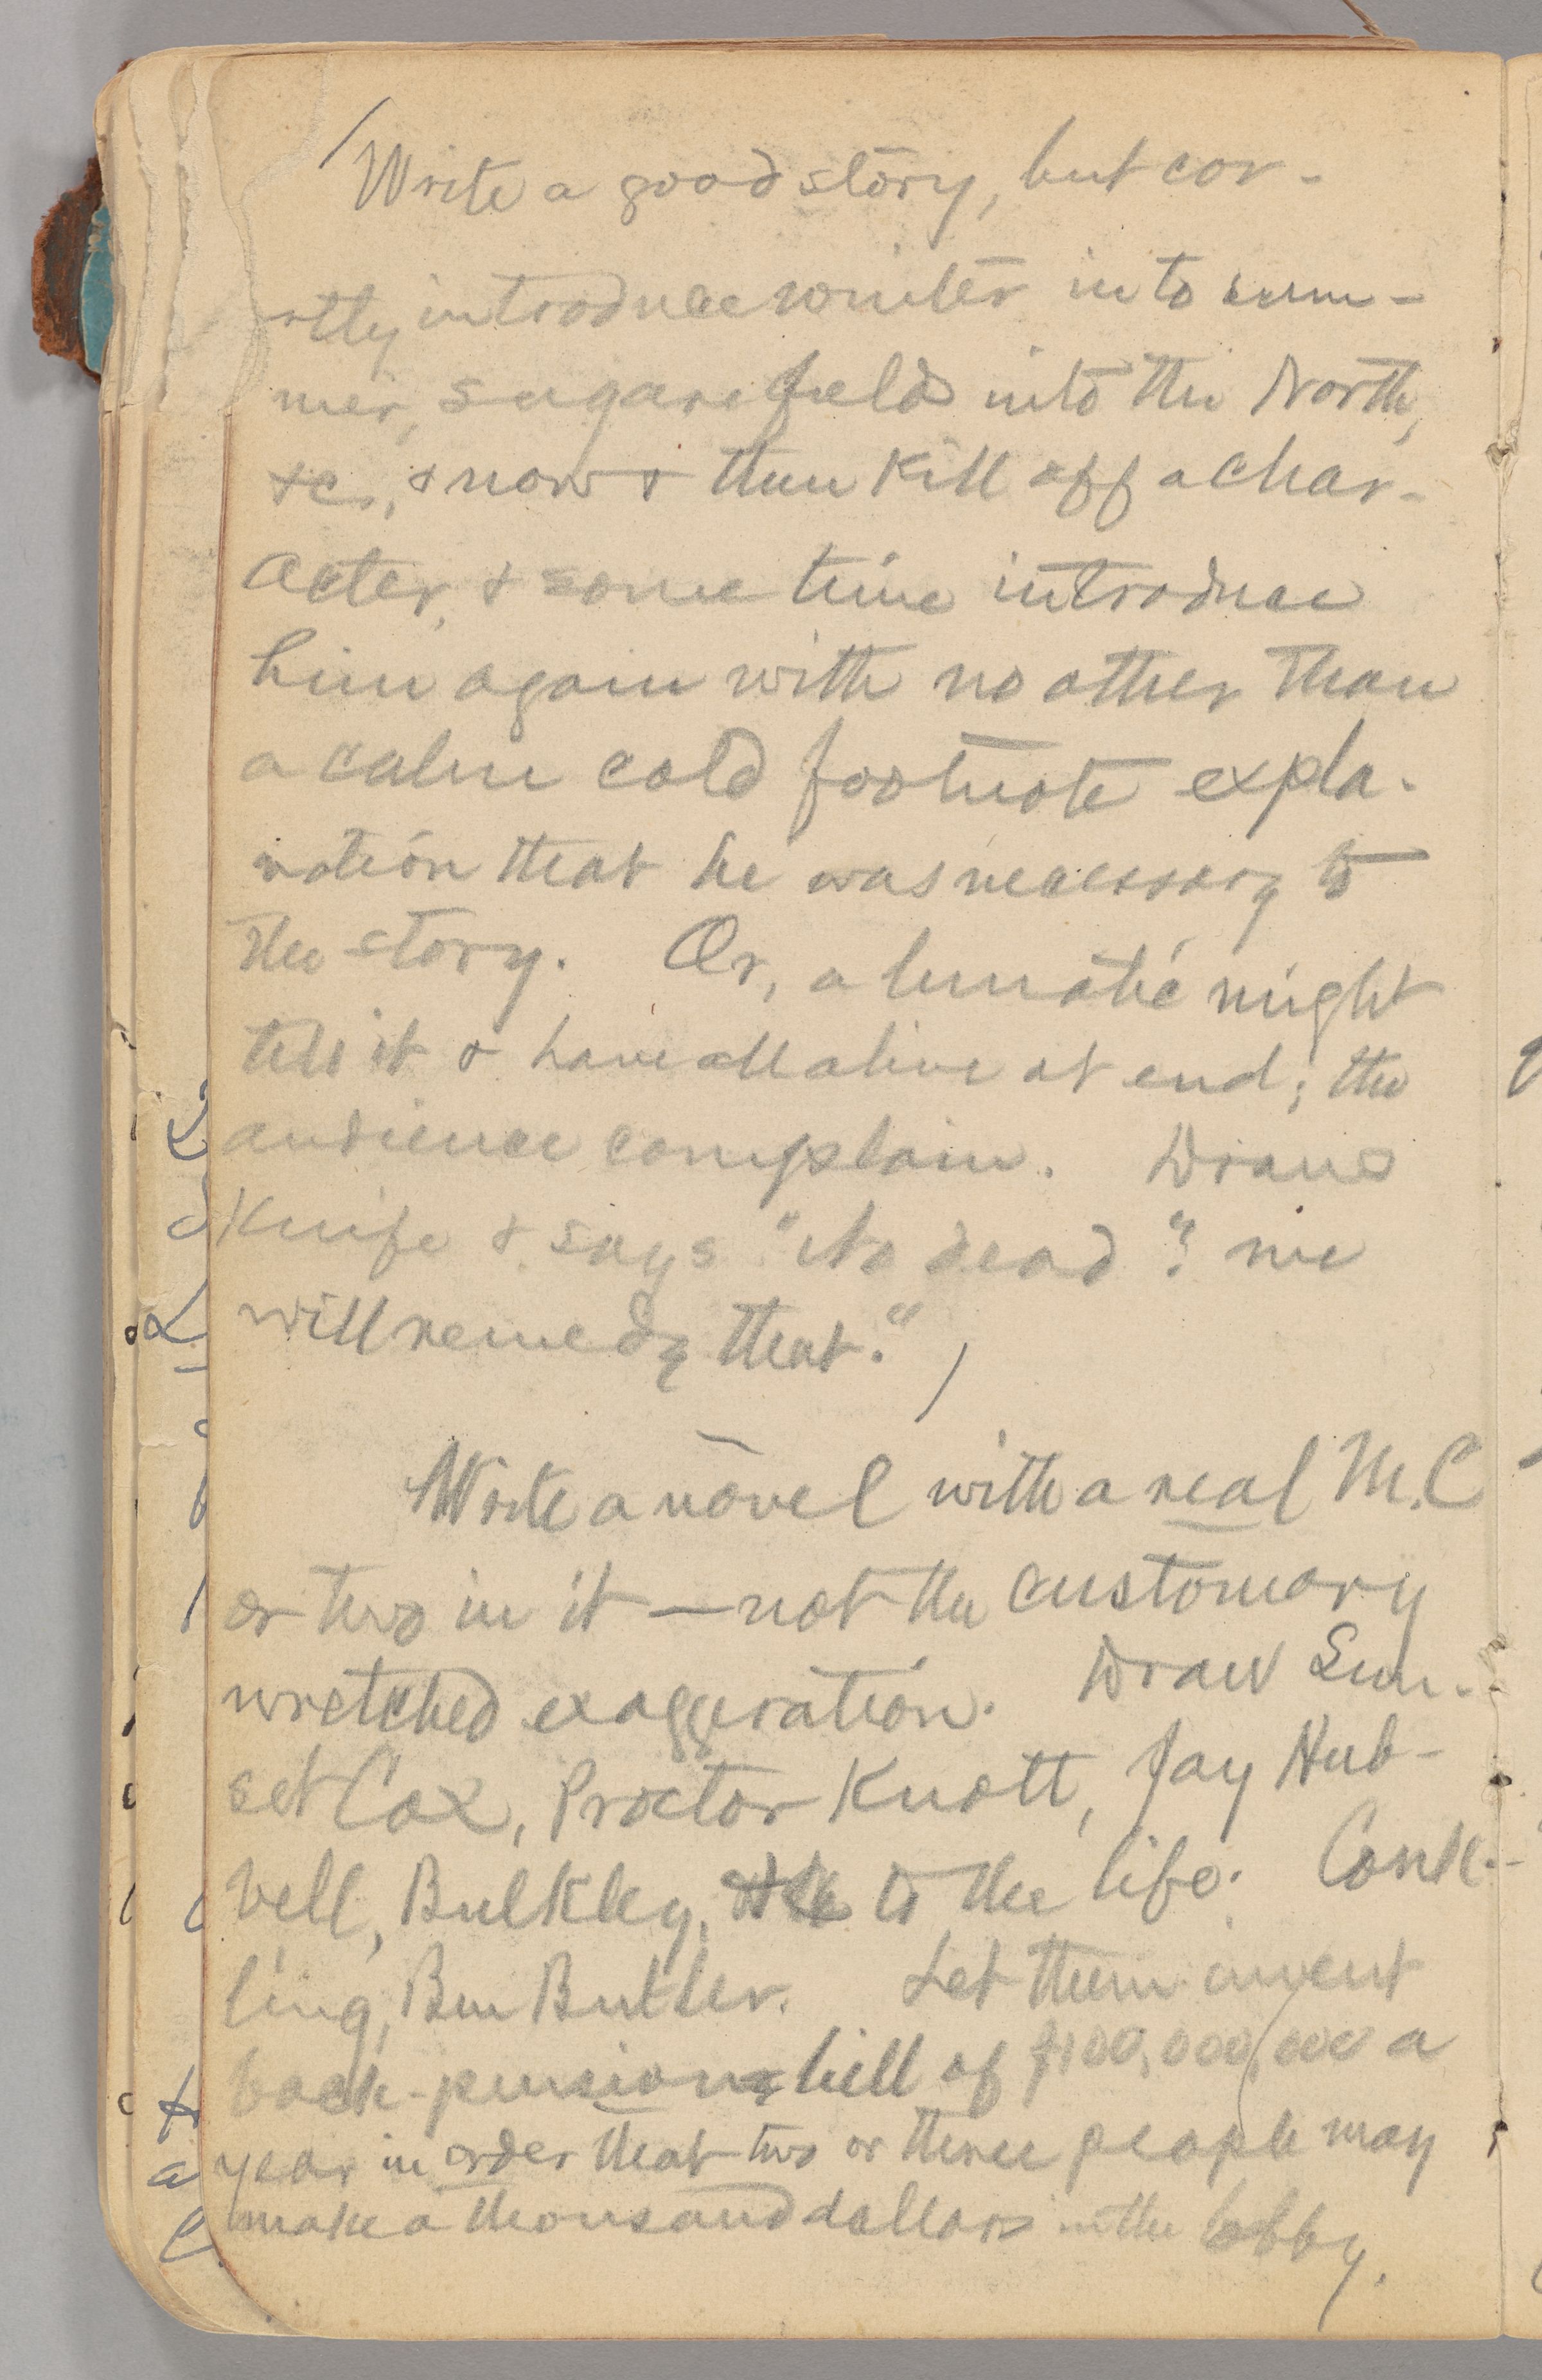 Write a good story, but cor-
rtly introduce winter into sum-
mer, sugar field into the North,
&c., & now & then kill off a char-
acter, & some time introduce
him again with no other than
a calm cold footnote expla-
nation that he was necessary to
the story. Or, a lunatic might
tell it & have all alive at end; the
audience complain. Draws
knife & says "No dead? we
will remedy that."
Write a novel with a real M.C
or two in it — not the customary
wretched exaggeration. Draw Sun-
set Cox, Proctor Knott, Jay Hub-
bell, Bulkley, to the life. Conk-
ling, Ben Butler. Let them invent
back-pension bill of $100,000,000 a
year in order that two or three people may
make a thousand dollars in the lobby.